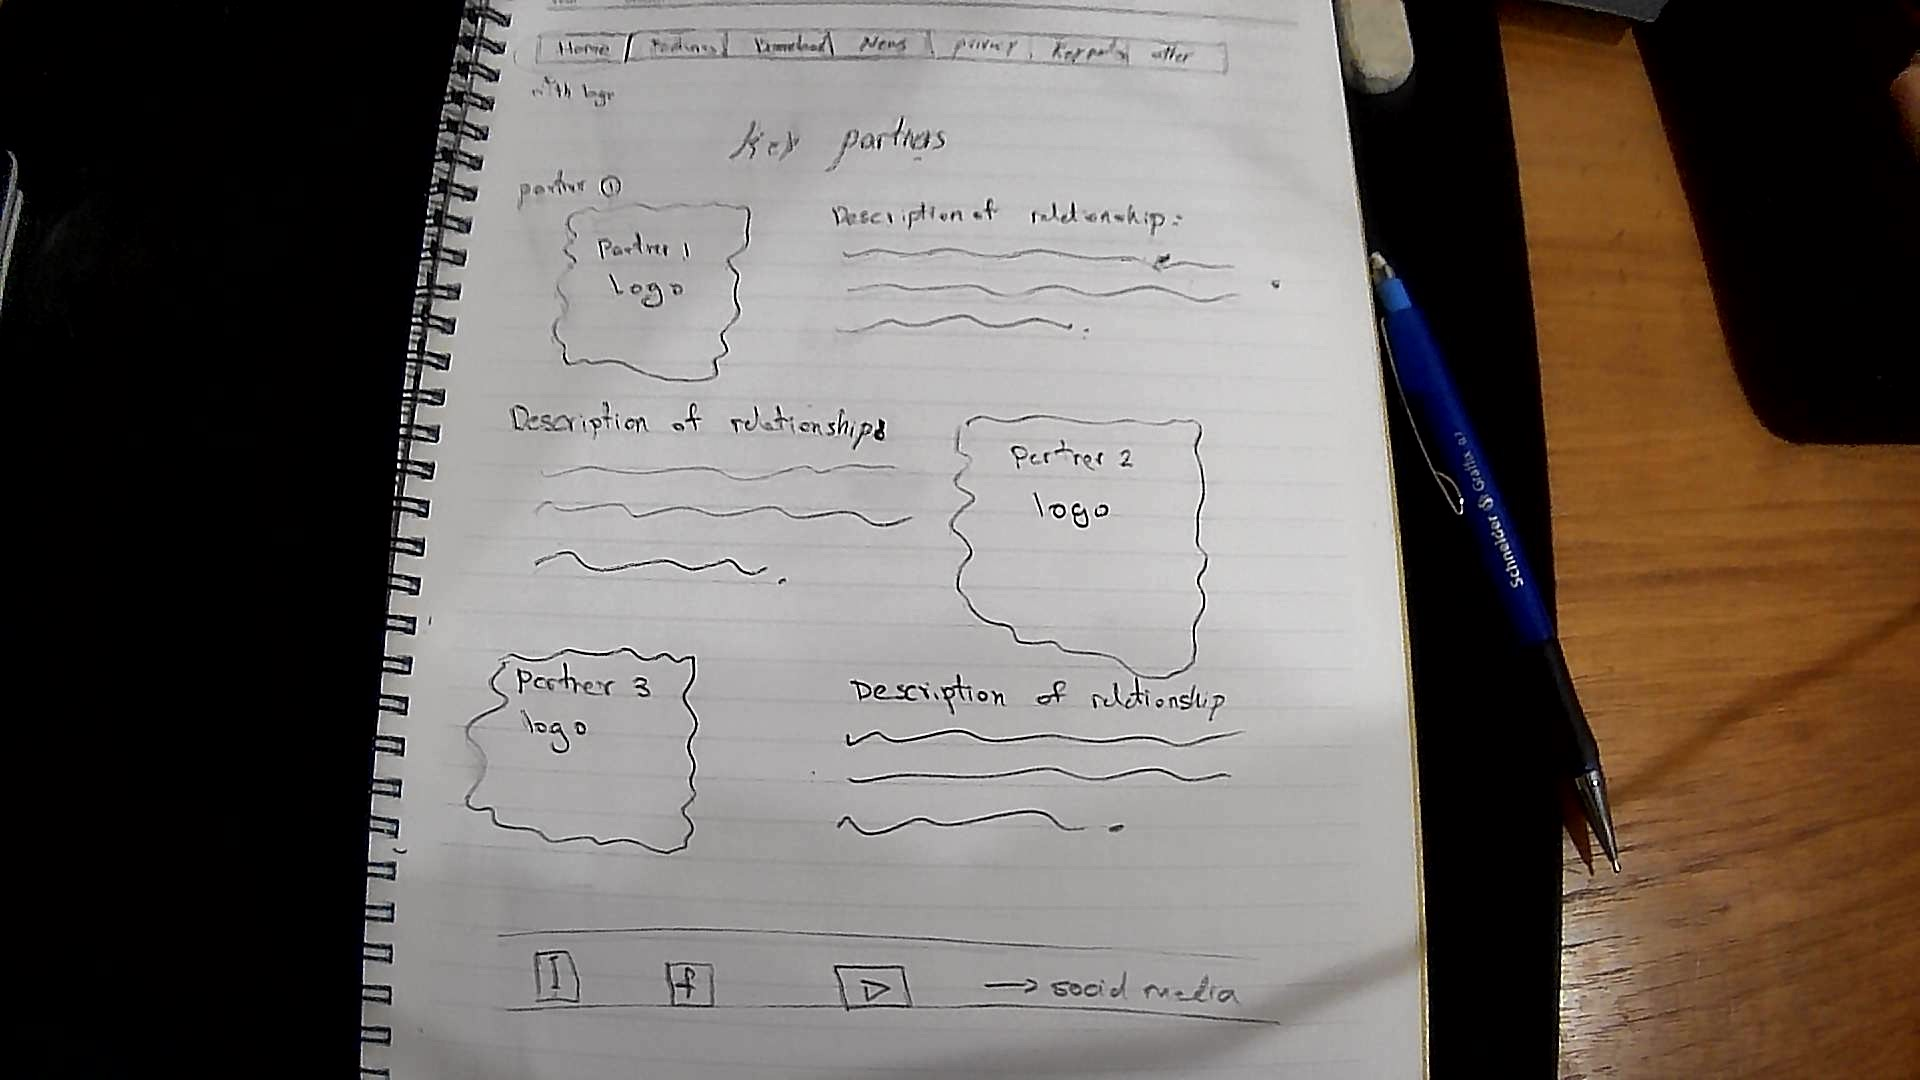 Home Download News privacy Key partners other
with logo
Key partners
partner ①
Partner 1
logo
Description of relationship:
Description of relationship:
Partner 2
logo
Partner 3
logo
Description of relationship
I f → social media
Schneider Graffix 0.7